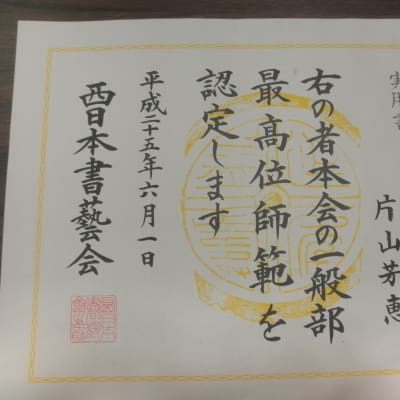 実用
片山芳恵
右の者本会の一般部
最高位師範を
認定します
平成二十五年六月一日
西日本書藝会